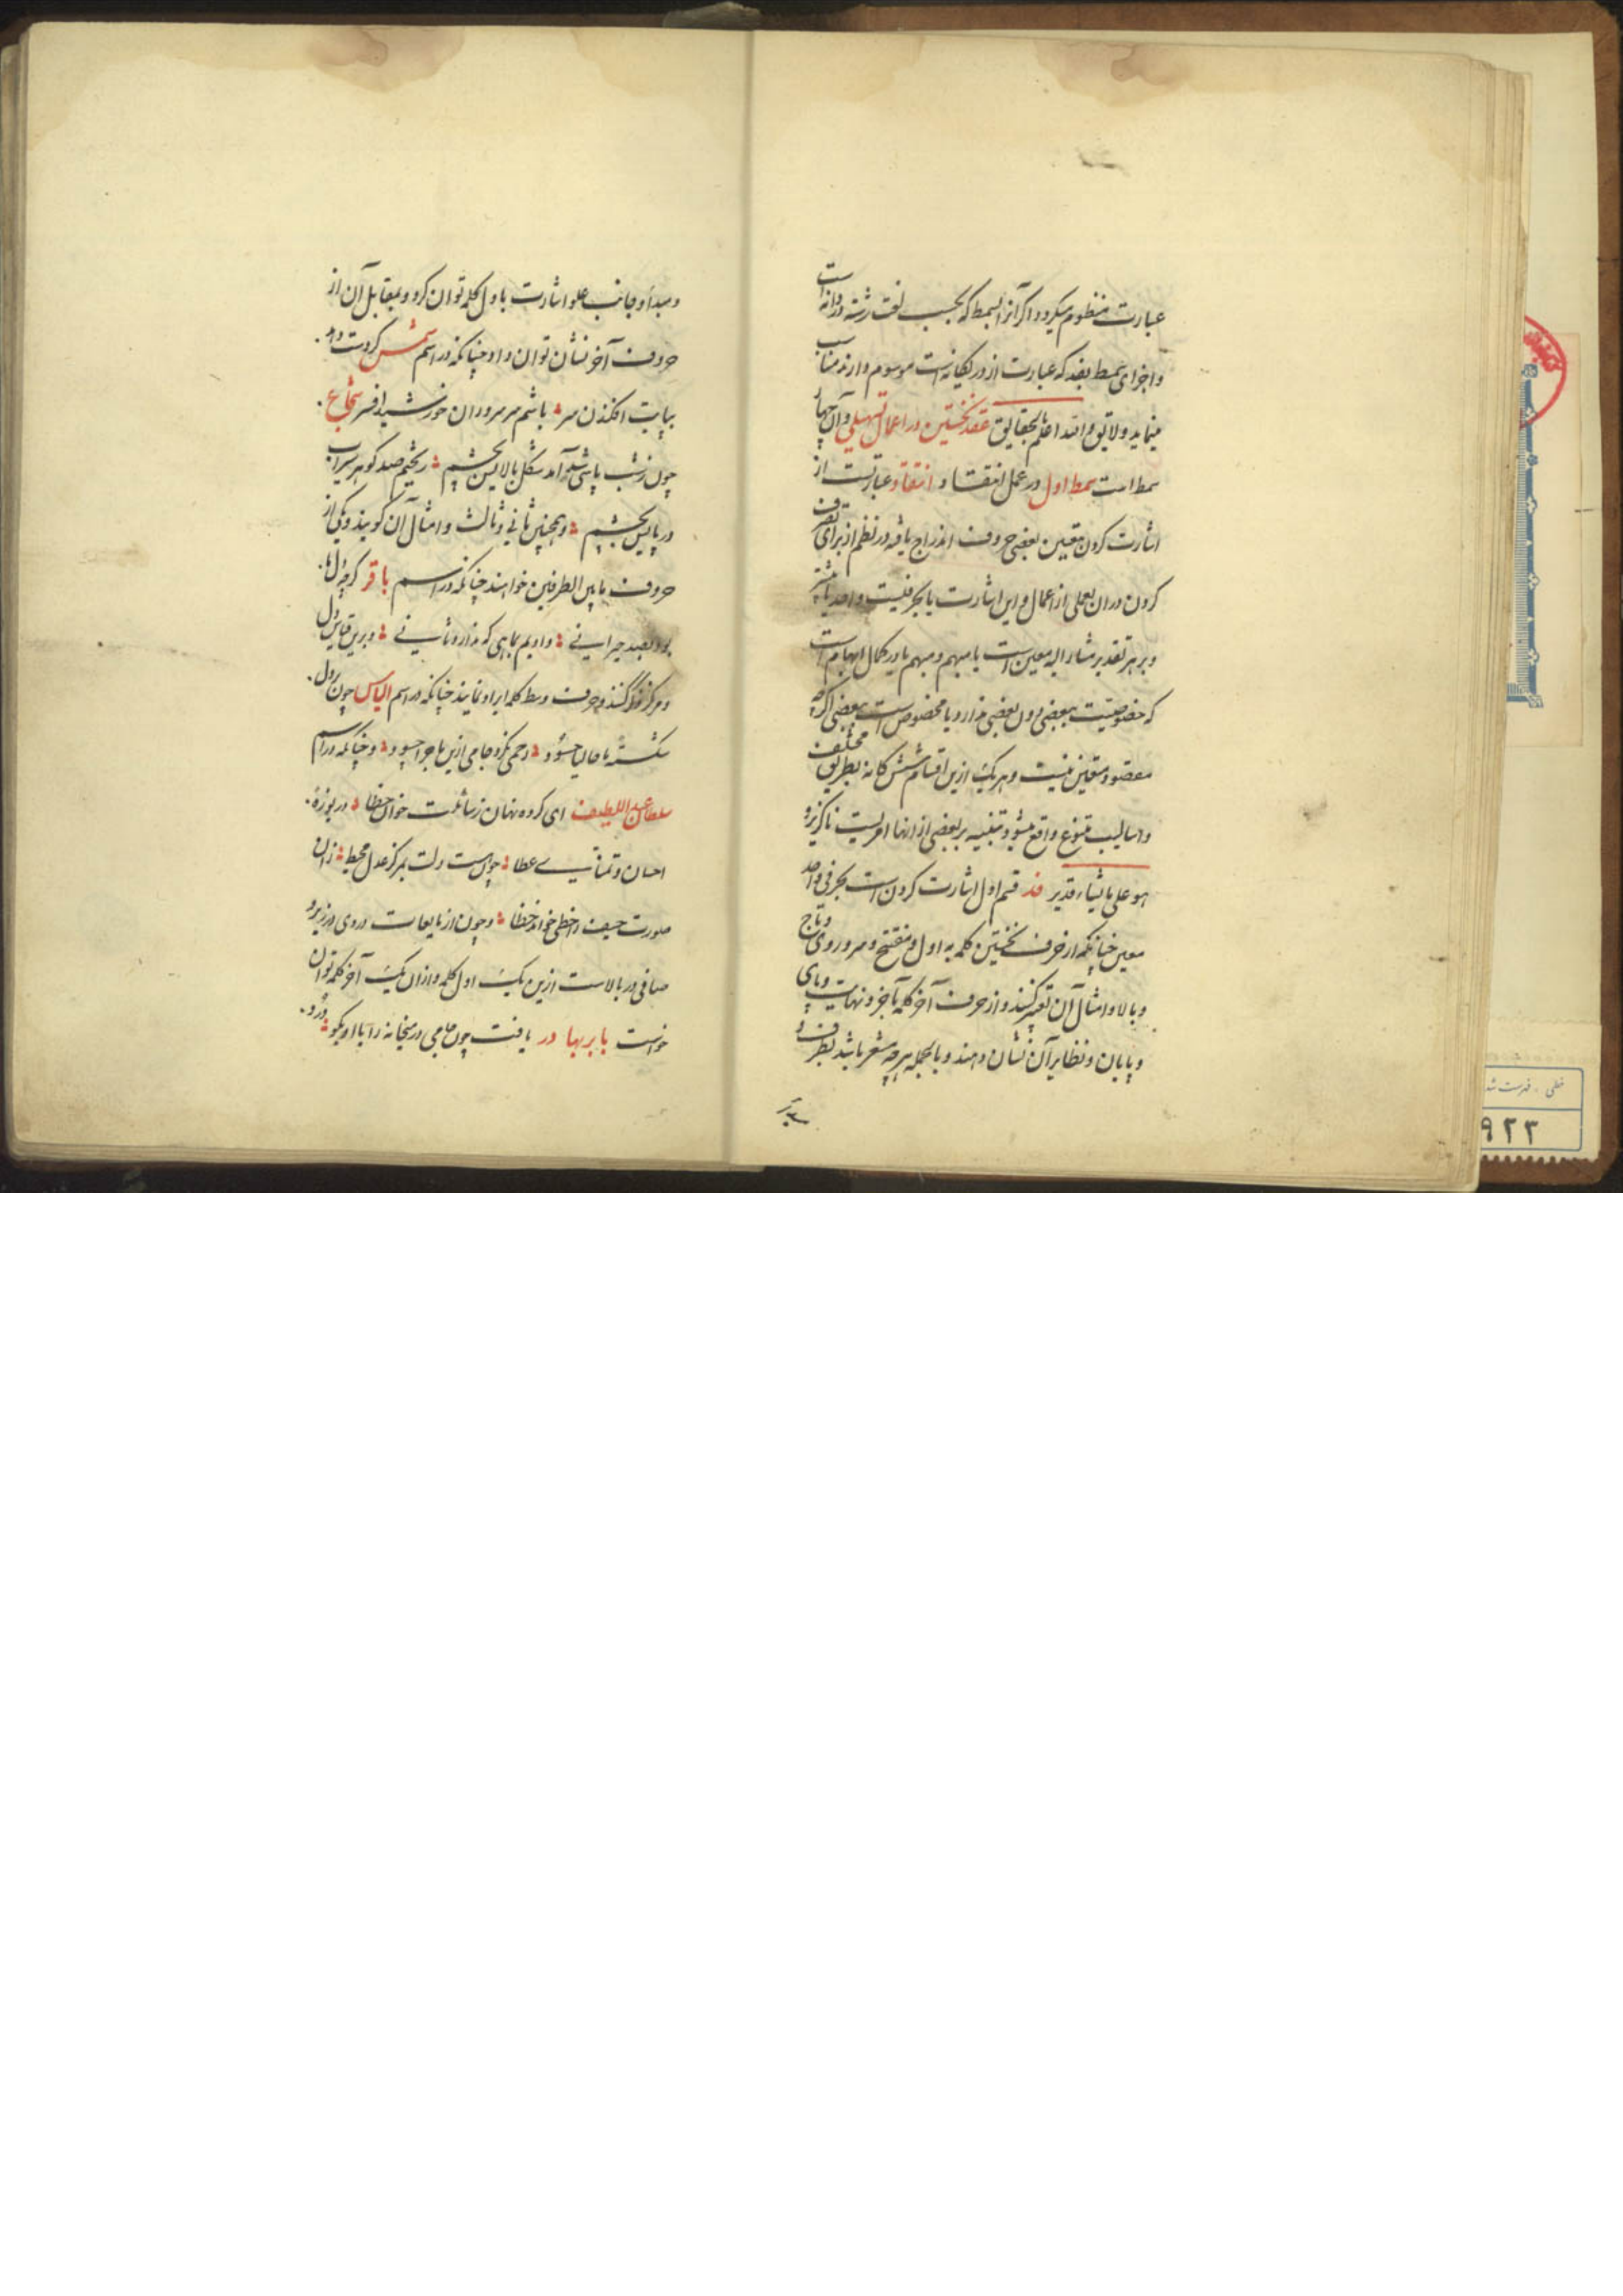 عبارت منظوم میکردد اکر آنرا بسمط که بحسب لغت رشته دردانه است
و اجزای سمط بفد که عبارت از در یکانه است موسوم دارند مناسب
مینماید و لایق و الله اعلم بحقایق عقد نخستین در اعمال تسهیلی و آن چهار
سمط است سمط اول در عمل انتقاد و انتقاد عبارتست از
اشارت کردن بتعیین بعضی حروف اندراج یافته در نظم از برای تصرف
کردن در آن بعملی از اعمال و این اشارت یا بحرفیست واحد یا بیشتر
و بر هر تقدیر مشار الیه معین است یا مبهم و مبهم یا در کمال ابهام است
که خصوصیت ببعضی دون بعضی ندارد یا مخصوص است ببعضی اکرچه
مقصود معین نیست و هر یک ازین اقسام شش کانه بطریق مختلف
و اسالیب متنوع واقع میشود و تنبیه بر بعضی از آنها امریست ناکزیر و
هو علی ما یشاء قدیر فد قسم اول اشارت کردن است بحرفی واحد
معین چنانکه از حرف نخستین کلمه به اول و مفتتح و سر و روی و تاج
و بالا و امثال آن تعبیر کنند و از حرف آخر کلمه بآخر و نهایت و پای
و پایان و نظایر آن نشان دهند و بالجمله هر چه مشعر باشد بطرف و
و مبدأ و جانب علو اشارت باول کلمه توان کرد و بمقابل آن از
حروف آخر نشان توان داد چنانکه در اسم شمس کر دست دهد
بپایت افکندن سر باشم سر سروران خورشید افسر شجاع
چون ز شب پاشی شد آمد شکل بالایش بچشم ریختم صد کوهر سیراب
در پایش بچشم و همچنین ثانی و ثالث و امثال آن کویند و یکی از
حروف مابین الطرفین خواهند چنانکه در اسم باقر کرچه دلها
بود بصید حیرانی دادیم بماهی که ندارد ثانی و برین قیاس دل
و مرکز ذکر کنند و حرف وسط کلمه اراده نمایند چنانکه در اسم الیاس چون دل
شکسته با خیالها چسود رحمی نکرد جامی ازین ماجرا چسود و چنانکه در اسم
سلطان عبداللطیف ای کرده نهان ز سائلت خوان خطا در یوزه
احسان و تمنای عطا چون هست دلت بمرکز عدل محیط زان
صورت حیف را خطی خواند خطا و چون از مایعات دردی در زیر و
صافی در بالاست ازین یک اول کلمه و از آن یک آخر کلمه توان
خواست بابر بهادر یافت چون جامی در میخانه را با او بکو درد